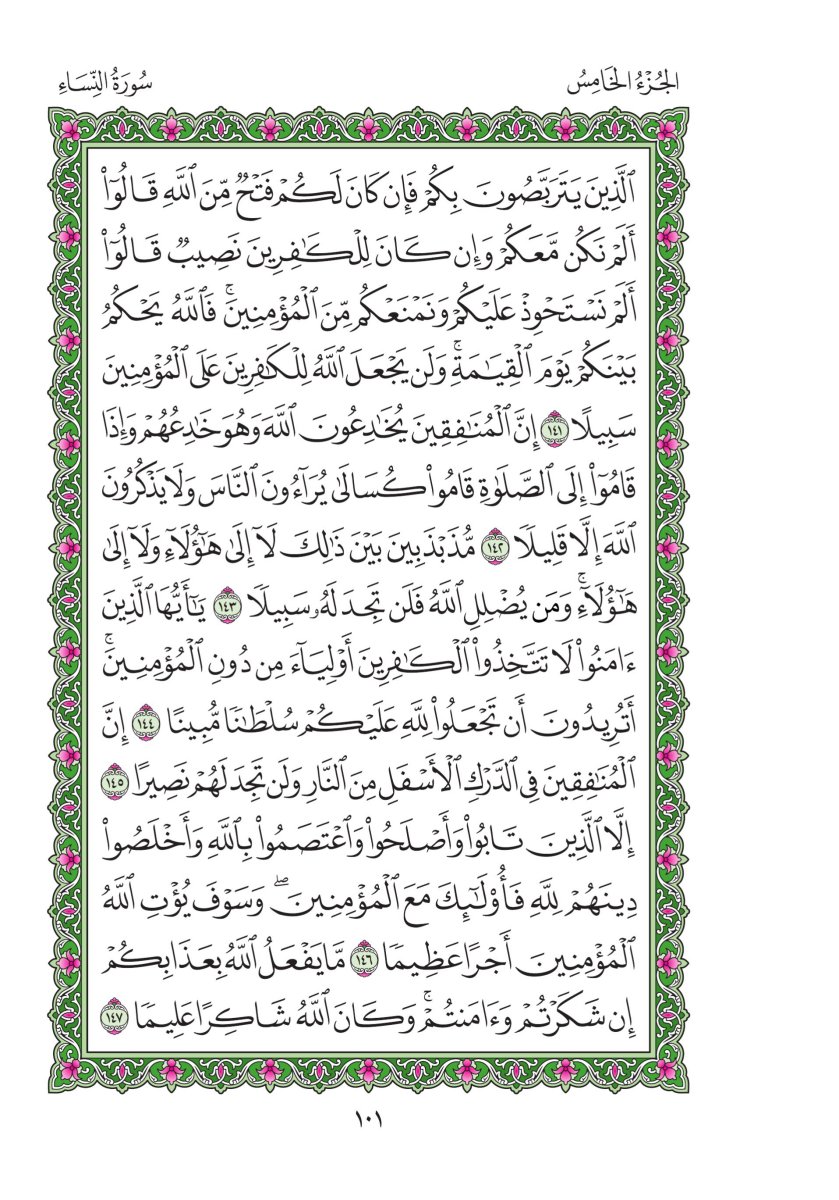 الجُزْءُ الخَامِسُ
سُورَةُ النِّسَاءِ
ٱلَّذِينَ يَتَرَبَّصُونَ بِكُمْ فَإِن كَانَ لَكُمْ فَتْحٌ مِّنَ ٱللَّهِ قَالُوٓا۟
أَلَمْ نَكُن مَّعَكُمْ وَإِن كَانَ لِلْكَـٰفِرِينَ نَصِيبٌ قَالُوٓا۟
أَلَمْ نَسْتَحْوِذْ عَلَيْكُمْ وَنَمْنَعْكُم مِّنَ ٱلْمُؤْمِنِينَ ۚ فَٱللَّهُ يَحْكُمُ
بَيْنَكُمْ يَوْمَ ٱلْقِيَـٰمَةِ ۗ وَلَن يَجْعَلَ ٱللَّهُ لِلْكَـٰفِرِينَ عَلَى ٱلْمُؤْمِنِينَ
سَبِيلًا ١٤١ إِنَّ ٱلْمُنَـٰفِقِينَ يُخَـٰدِعُونَ ٱللَّهَ وَهُوَ خَـٰدِعُهُمْ وَإِذَا
قَامُوٓا۟ إِلَى ٱلصَّلَوٰةِ قَامُوا۟ كُسَالَىٰ يُرَآءُونَ ٱلنَّاسَ وَلَا يَذْكُرُونَ
ٱللَّهَ إِلَّا قَلِيلًا ١٤٢ مُّذَبْذَبِينَ بَيْنَ ذَٰلِكَ لَآ إِلَىٰ هَـٰٓؤُلَآءِ وَلَآ إِلَىٰ
هَـٰٓؤُلَآءِ ۚ وَمَن يُضْلِلِ ٱللَّهُ فَلَن تَجِدَ لَهُۥ سَبِيلًا ١٤٣ يَـٰٓأَيُّهَا ٱلَّذِينَ
ءَامَنُوا۟ لَا تَتَّخِذُوا۟ ٱلْكَـٰفِرِينَ أَوْلِيَآءَ مِن دُونِ ٱلْمُؤْمِنِينَ ۚ
أَتُرِيدُونَ أَن تَجْعَلُوا۟ لِلَّهِ عَلَيْكُمْ سُلْطَـٰنًا مُّبِينًا ١٤٤ إِنَّ
ٱلْمُنَـٰفِقِينَ فِى ٱلدَّرْكِ ٱلْأَسْفَلِ مِنَ ٱلنَّارِ وَلَن تَجِدَ لَهُمْ نَصِيرًا ١٤٥
إِلَّا ٱلَّذِينَ تَابُوا۟ وَأَصْلَحُوا۟ وَٱعْتَصَمُوا۟ بِٱللَّهِ وَأَخْلَصُوا۟
دِينَهُمْ لِلَّهِ فَأُو۟لَـٰٓئِكَ مَعَ ٱلْمُؤْمِنِينَ ۖ وَسَوْفَ يُؤْتِ ٱللَّهُ
ٱلْمُؤْمِنِينَ أَجْرًا عَظِيمًا ١٤٦ مَّا يَفْعَلُ ٱللَّهُ بِعَذَابِكُمْ
إِن شَكَرْتُمْ وَءَامَنتُمْ ۚ وَكَانَ ٱللَّهُ شَاكِرًا عَلِيمًا ١٤٧
١٠١